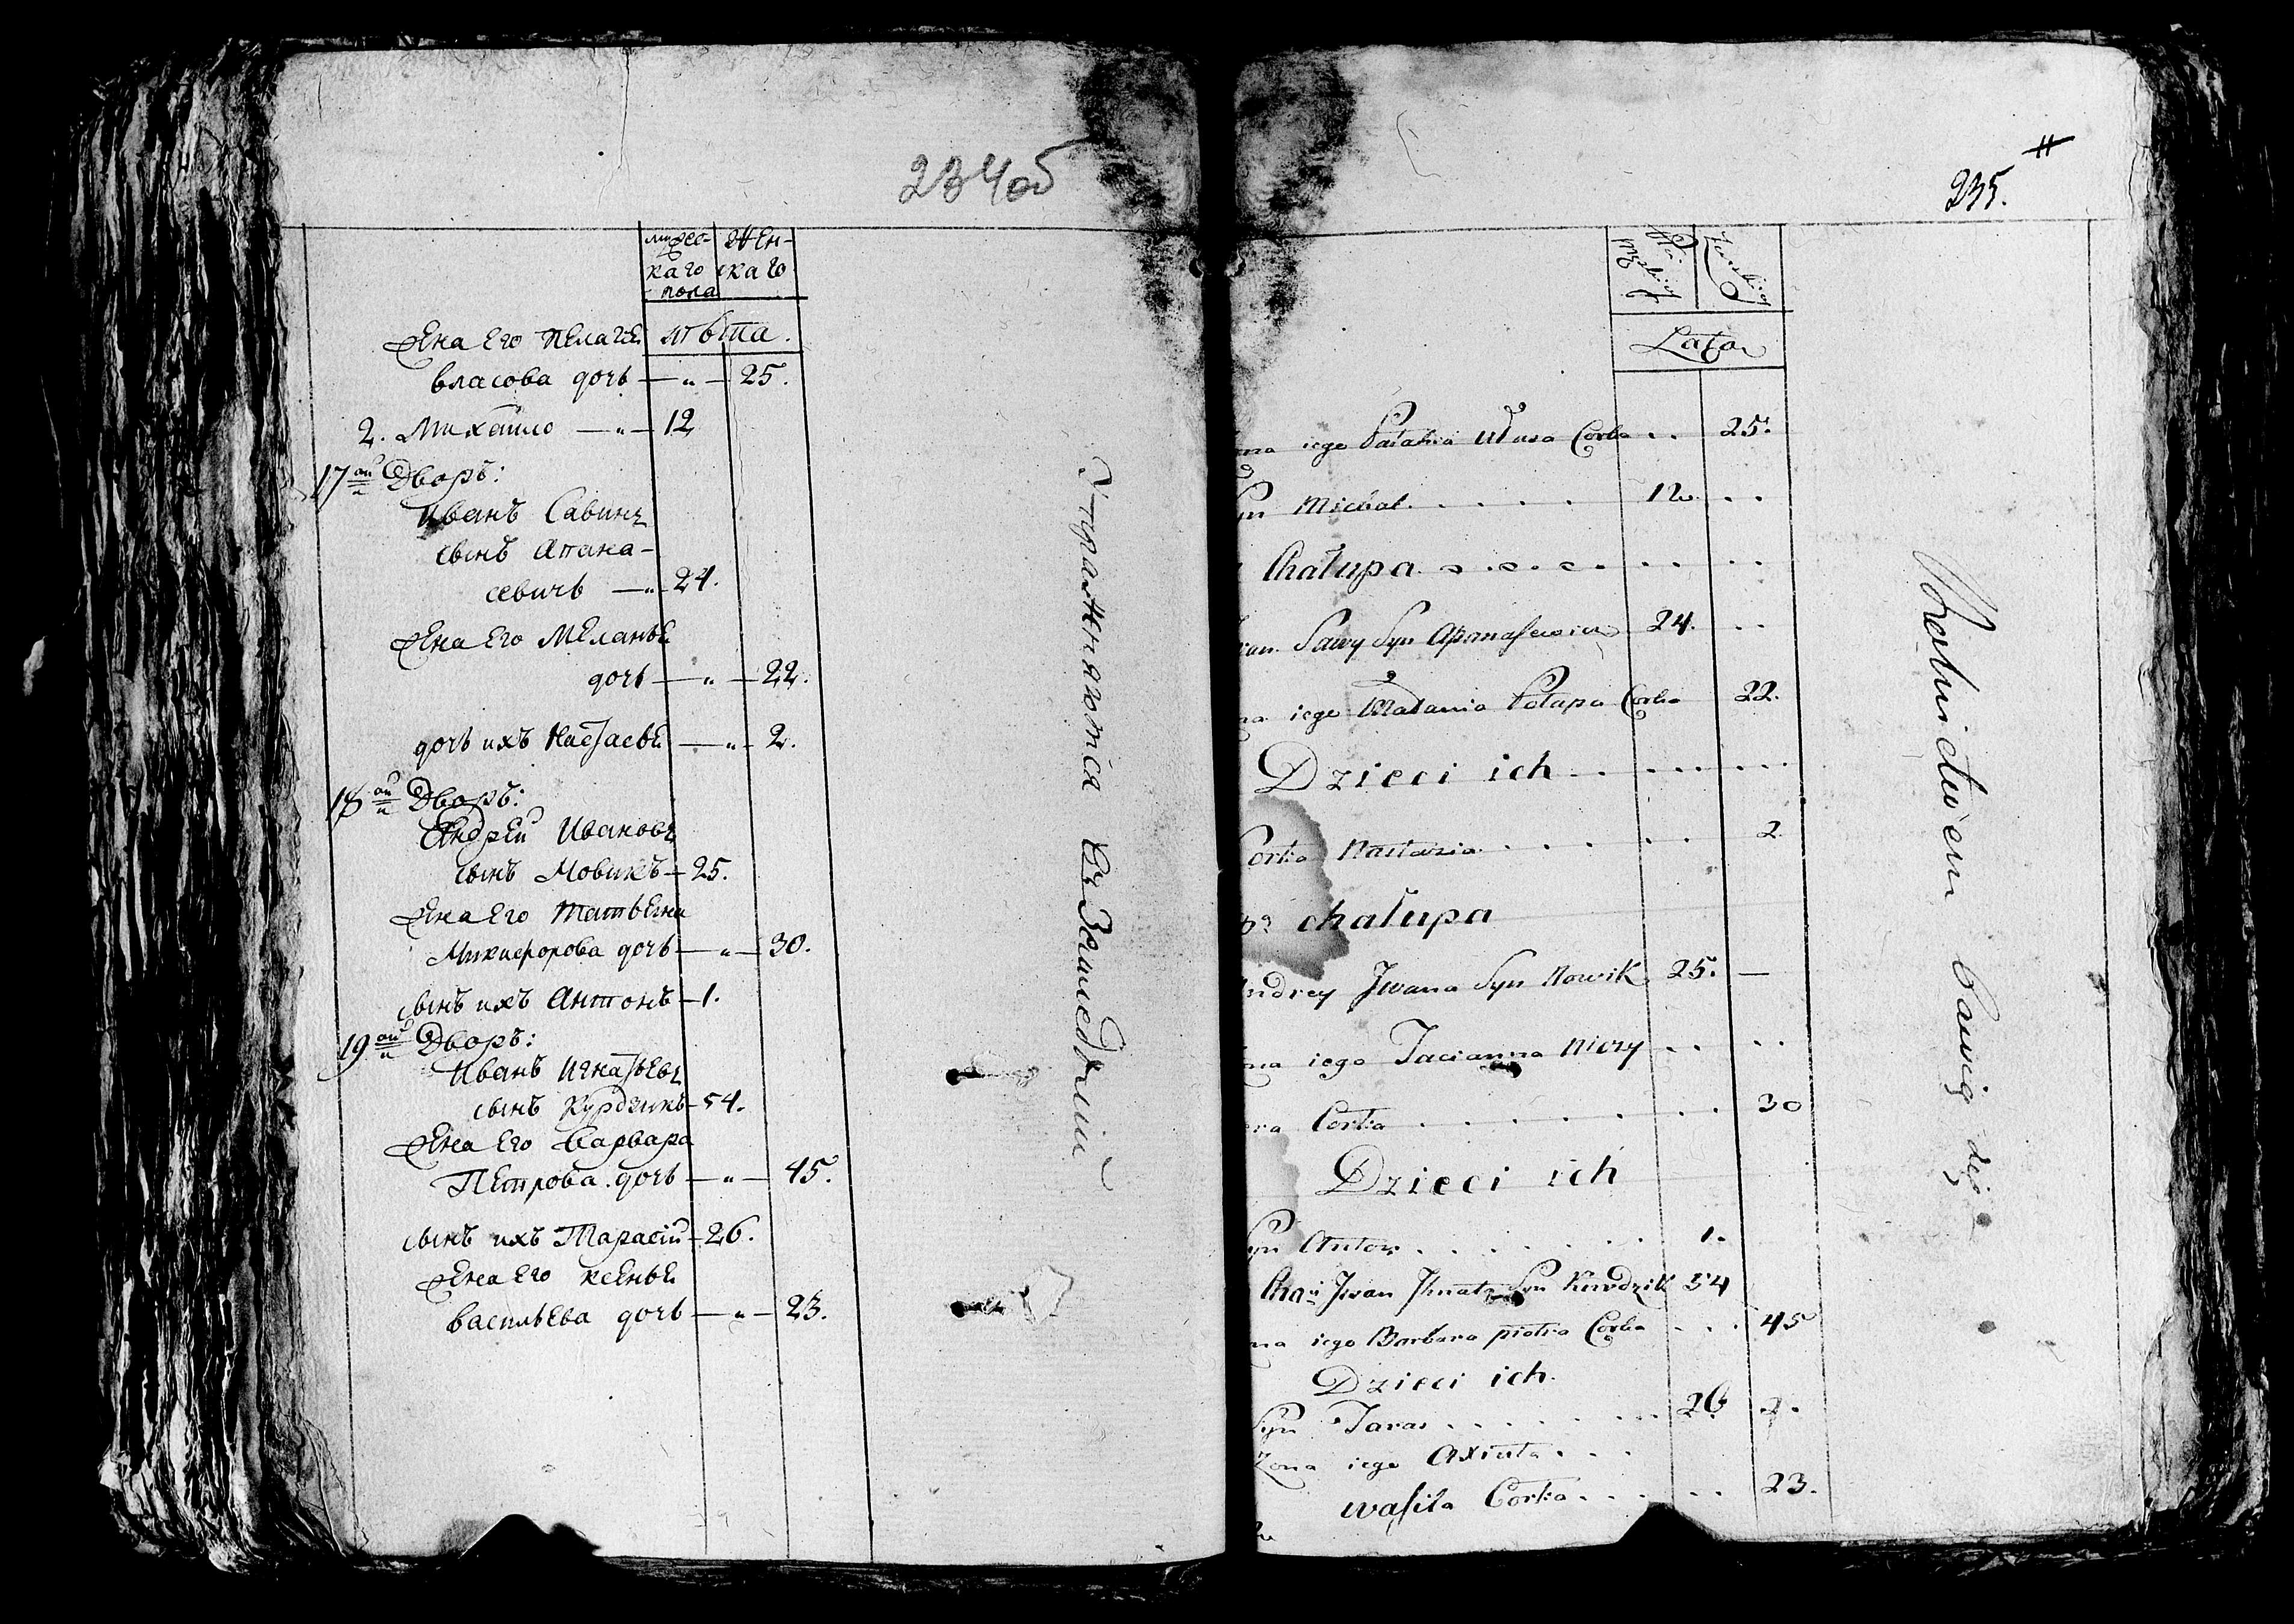 234об
мужес- жен-
каго скаго
пола
лѣта.
жена его Пелагѣя
власова дочь — " — 25.
2. Михайло — " — 12
17ый Дворъ:
Иванъ Савинъ
сынъ Апана-
севичъ — " 24.
жена его Меланья
дочь — " — 22.
дочь ихъ Настасья — " — 2.
18ый Дворъ:
Андрей Ивановъ
сынъ Новикъ — 25.
жена его Татьяна
Микифорова дочь — " — 30.
сынъ ихъ Антонъ — 1.
19ый Дворъ:
Иванъ Игнатьевъ
сынъ Курдзикъ — 54.
жена его Варвара
Петрова дочь — " — 45.
сынъ ихъ Тарасiй — 26.
жена его Ксенья
васильева дочь — " — 23.
Упражняются въ Земледѣлiи
235.
Lata
na iego Palahia Ułasa Corka . . 25.
yn Michał . . . . . 12 . .
Chałupa . . . . . . . . .
wan Sawy Syn Apanasewicz 24. . .
na iego Małania Potapa Corka 22.
Dzieci ich . . . . . . . .
Corka Nastazia . . . . . . 2
chałupa
Andrey Jwana Syn Nowik 25. —
na iego Tacianna Niczy . . . .
ora Corka . . . . . . . 30
Dzieci ich
Syn Anton . . . . . . . 1.
Cha: Jwan Jhnata Syn Kurdzik 54
na iego Barbara piotra Corka . . . 45
Dzieci ich
Syn Taras . . . . . . . 26
Zona iego Axiuta . . .
wasila Corka . . . . . . 23.
Rolnictwem Bawią się